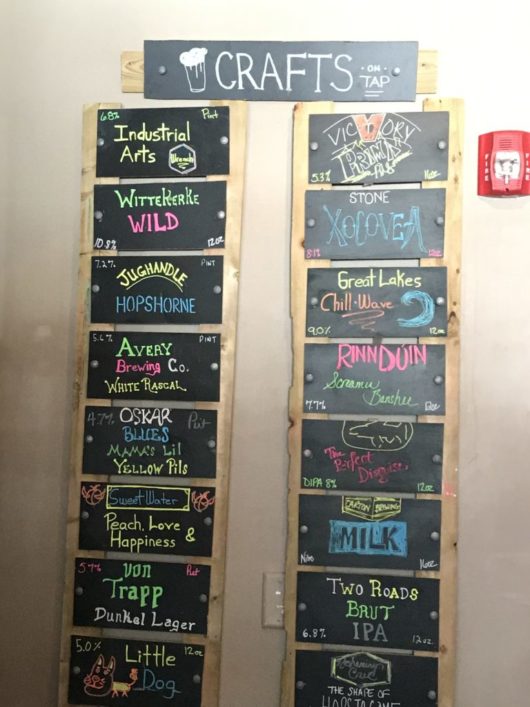 CRAFTS ON TAP
6.8% Pint
Industrial
Arts Wrench
WITTEKERKE
WILD
10.8% 12oz
7.2% PINT
JUGHANDLE
HOPSHORNE
5.6% PINT
AVERY
Brewing Co.
WHITE RASCAL
4.7% OSKAR Pint
BLUES
MAMA'S Lil
YELLOW PilS
Sweet Water
Peach, Love &
Happiness
5.7%
von
Trapp
Dunkel Lager
5.0% 12oz
Little
Dog
VICTORY
PRIMA
PILS
5.3%
STONE
XOCOVEZA
8.1% 12oz
Great Lakes
Chill-Wave
9.0% 12oz
RINN DÚIN
Scream'n
Banshee
7.7%
The
Perfect
Disguise
DIPA 8% 12oz
CARTON BREWING
MILK
Nitro
TWO ROADS
BRUT
IPA
6.8% 12oz.
THE SHAPE OF
HOPS TO COME
FIRE
FIRE